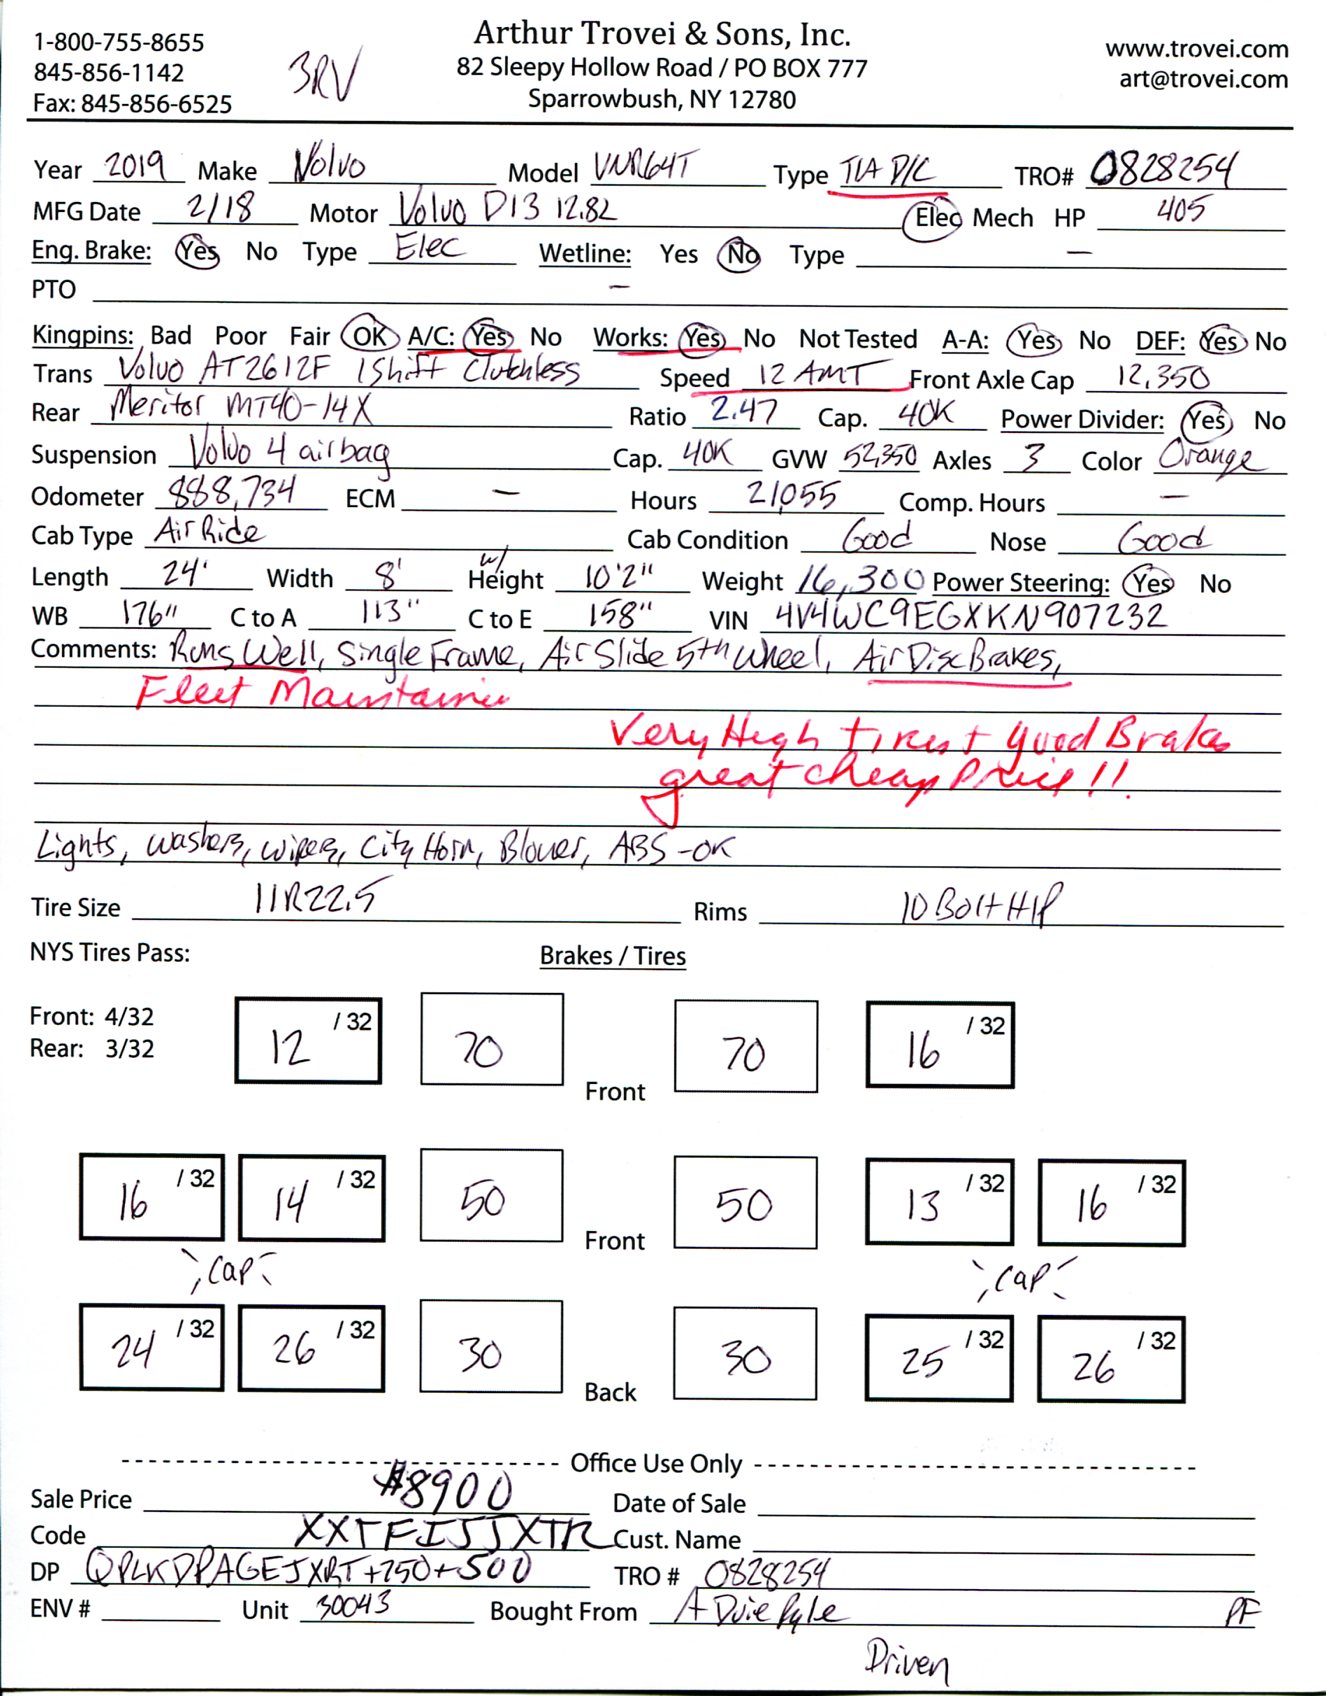 1-800-755-8655
845-856-1142
Fax: 845-856-6525
3RV
Arthur Trovei & Sons, Inc.
82 Sleepy Hollow Road / PO BOX 777
Sparrowbush, NY 12780
www.trovei.com
art@trovei.com
Year 2019 Make Volvo Model VNR64T Type T/A D/C TRO# 0828254
MFG Date 2/18 Motor Volvo D13 12.8L Elec Mech HP 405
Eng. Brake: Yes No Type Elec Wetline: Yes No Type —
PTO —
Kingpins: Bad Poor Fair OK A/C: Yes No Works: Yes No Not Tested A-A: Yes No DEF: Yes No
Trans Volvo AT2612F IShift Clutchless Speed 12 AMT Front Axle Cap 12,350
Rear Meritor MT40-14X Ratio 2.47 Cap. 40K Power Divider: Yes No
Suspension Volvo 4 airbag Cap. 40K GVW 52,350 Axles 3 Color Orange
Odometer 888,734 ECM — Hours 21,055 Comp. Hours —
Cab Type Air Ride Cab Condition Good Nose Good
Length 24' Width 8' w/ Height 10'2" Weight 16,300 Power Steering: Yes No
WB 176" C to A 113" C to E 158" VIN 4V4WC9EGXKN907232
Comments: Runs Well, Single Frame, Air Slide 5th Wheel, Air Disc Brakes,
Fleet
Very High tires + good Brakes
great cheap Price!!
Lights, washers, wipers, City Horn, Blower, ABS -OK
Tire Size 11R22.5 Rims 10 Bolt HP
NYS Tires Pass: Brakes / Tires
Front: 4/32
Rear: 3/32
12 /32 70 Front 70 16 /32
16 /32 14 /32 50 Front 50 13 /32 16 /32
Cap Cap
24 /32 26 /32 30 Back 30 25 /32 26 /32
Office Use Only
Sale Price $8900 Date of Sale
Code XXTFIJJXTR Cust. Name
DP QPLKDPAGEJXRT+250+500 TRO # 0828254
ENV # Unit 30043 Bought From A Duie Pyle PF
Driven